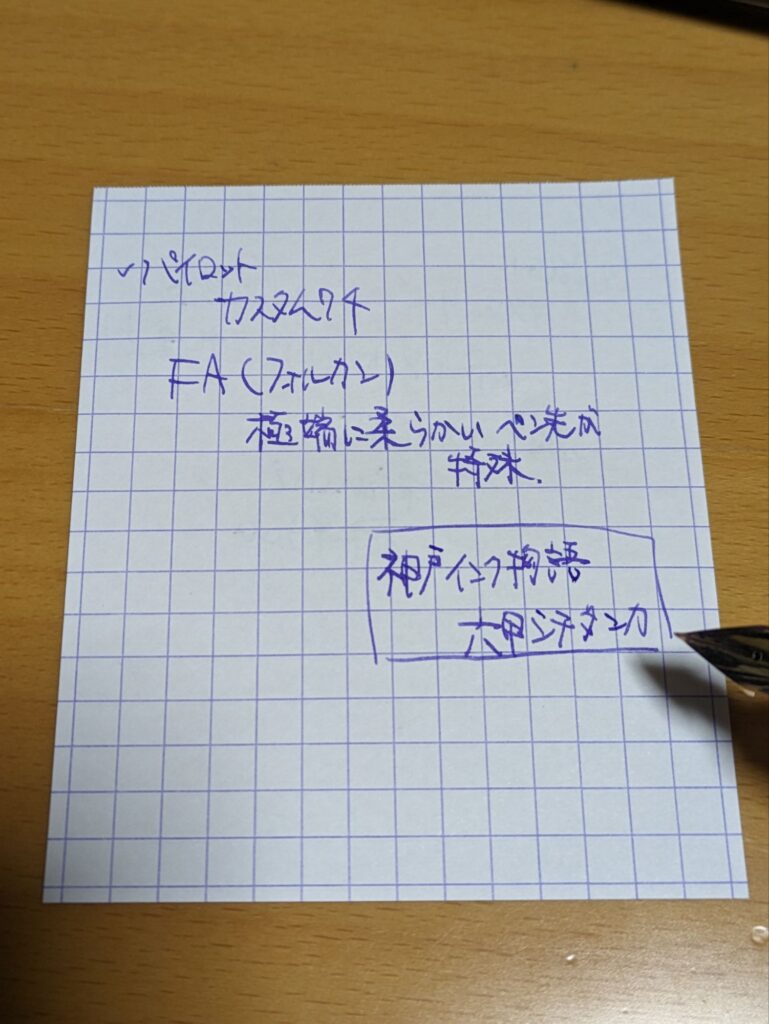 ✓パイロット
カスタム74
FA(フォルカン)
極端に柔らかいペン先が
特殊.
神戸インク物語
六甲シチダンカ